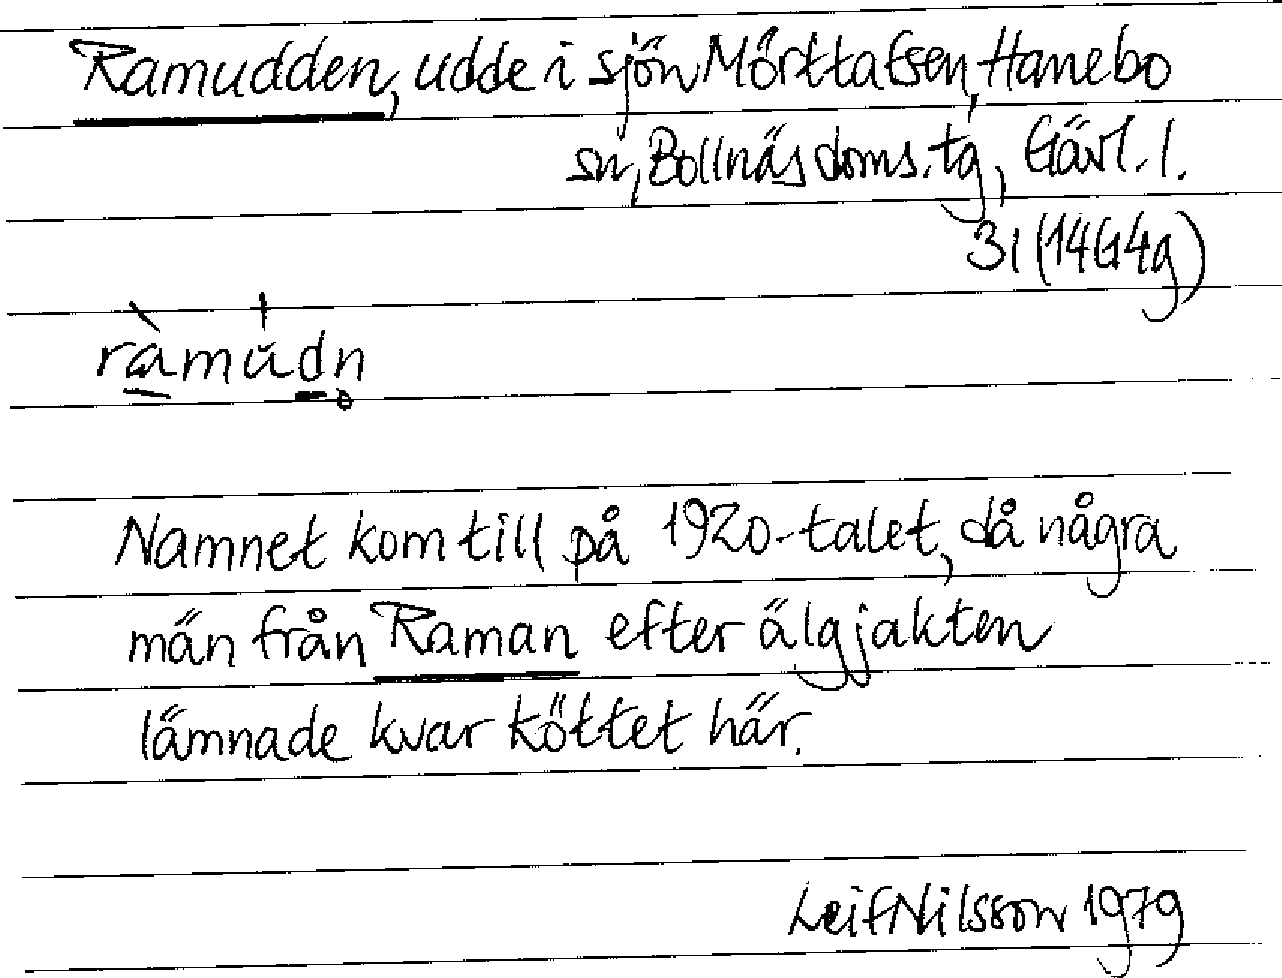 Ramudden, udde i sjön Mörttafsen, Hanebo
sn, Bollnäs doms. tg, Gävl. l.
31 (14G4g)
ràmŭdn̥
Namnet kom till på 1920-talet, då några
män från Raman efter älgjakten
lämnade kvar köttet här.
Leif Nilsson 1979